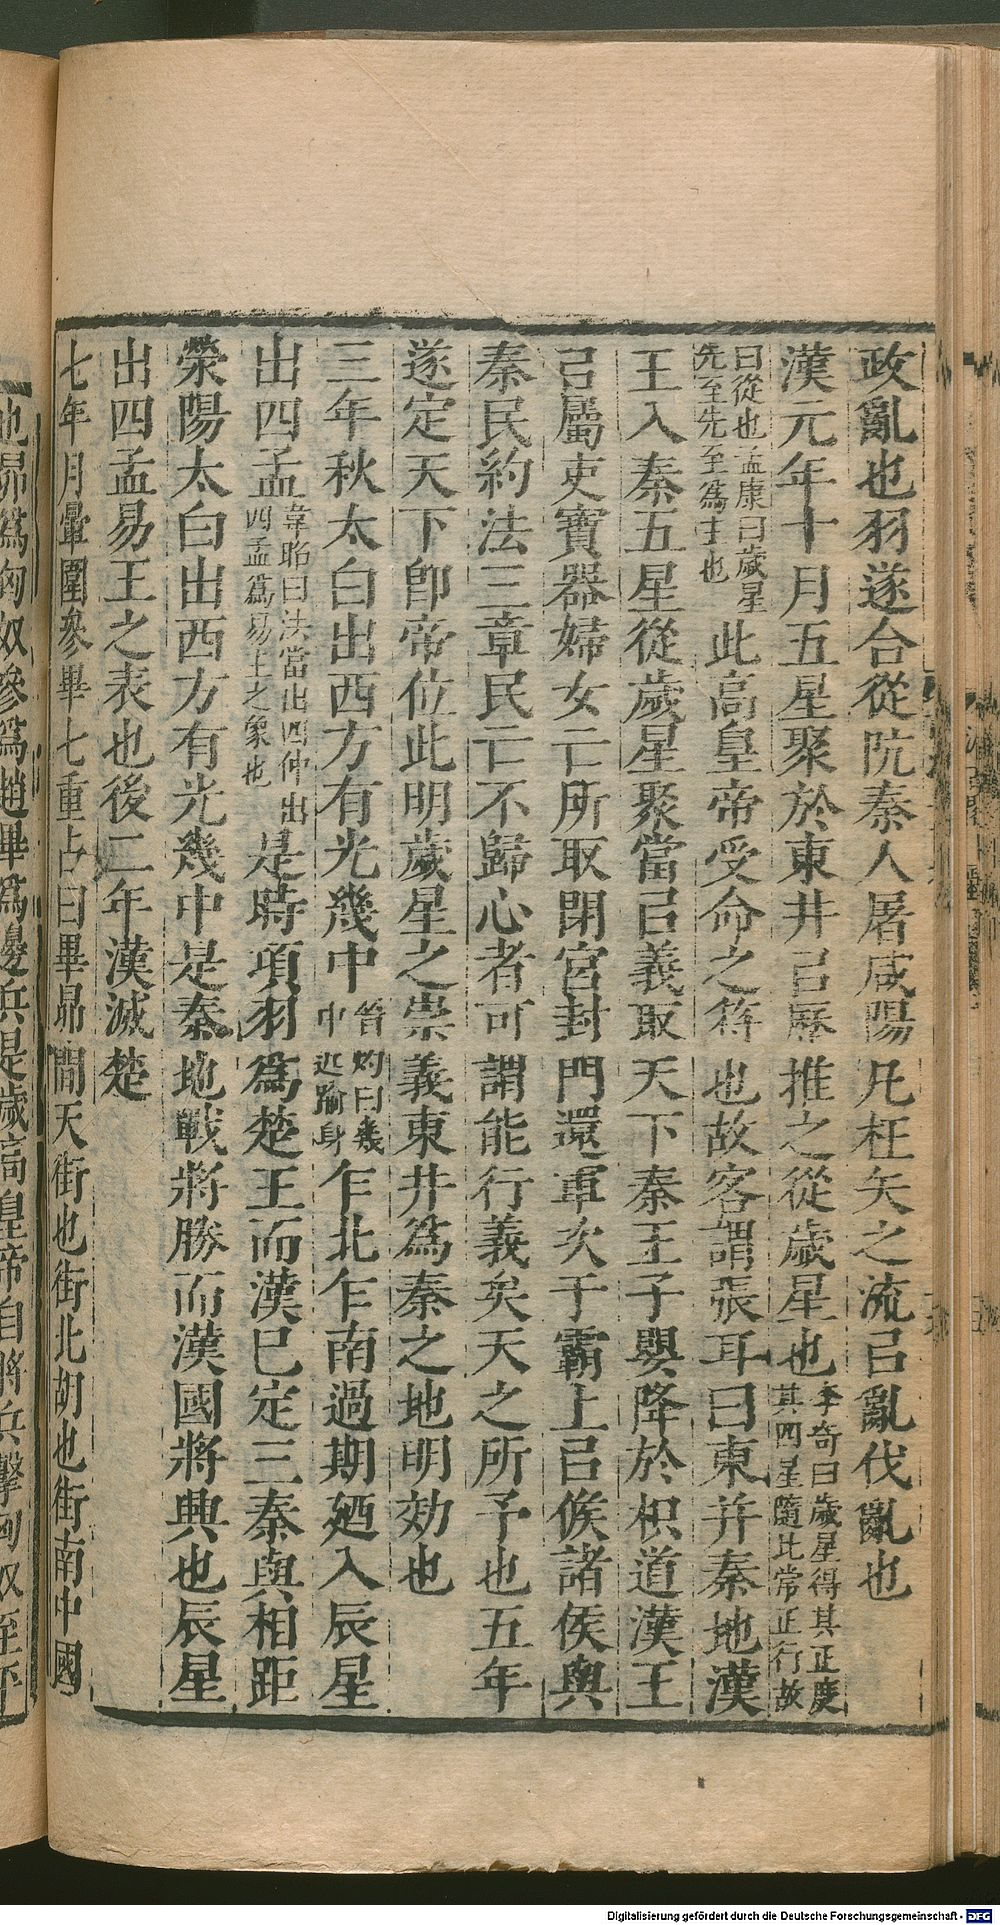 政亂也羽遂合從阬秦人屠咸陽凡枉矢之流㠯亂伐亂也
漢元年十月五星聚於東井㠯曆推之從歲星也李奇曰歲星得其正度其四星隨此常正行故
曰從也孟康曰歲星先至先至爲主也此高皇帝受命之符也故客謂張耳曰東井秦地漢
王入秦五星從歲星聚當㠯義取天下秦王子嬰降於枳道漢王
㠯屬吏寶器婦女亡所取閉宮封門還軍次于霸上㠯候諸侯與
秦民約法三章民亡不歸心者可謂能行義矣天之所予也五年
遂定天下卽帝位此明歲星之崇義東井爲秦之地明効也
三年秋太白出西方有光幾中晉灼曰幾中近踰身乍北乍南過期廼入辰星
出四孟韋昭曰法當出四仲出四孟爲易主之象也是時項羽爲楚王而漢已定三秦與相距
滎陽太白出西方有光幾中是秦地戰將勝而漢國將興也辰星
出四孟易王之表也後二年漢滅楚
七年月暈圍參畢七重占曰畢昴間天街也街北胡也街南中國
也昴爲匈奴參爲趙畢爲邊兵是歲高皇帝自將兵擊匈奴至平
Digitalisierung gefördert durch die Deutsche Forschungsgemeinschaft - DFG